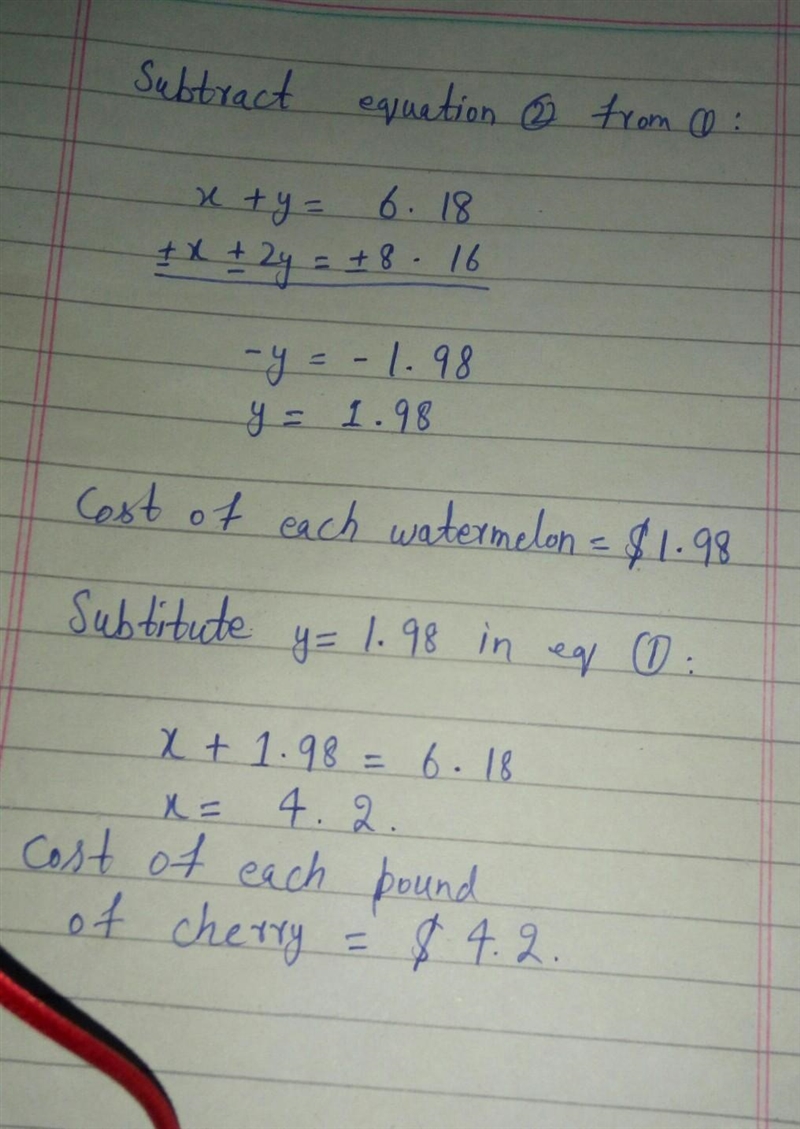 Subtract equation ② from ①:
x + y = 6.18
± x ± 2y = ± 8.16
-y = -1.98
y = 1.98
Cost of each watermelon = $1.98
Subtitute y = 1.98 in eq ①:
x + 1.98 = 6.18
x = 4.2.
Cost of each pound
of cherry = $4.2.